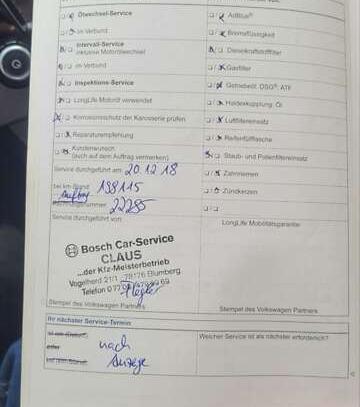 Ölwechsel-Service
im Verbund
Intervall-Service
inklusive Motorölwechsel
im Verbund
Inspektions-Service
LongLife Motoröl verwendet
Korrosionsschutz der Karosserie prüfen
Reparaturempfehlung
Kundenwunsch
(auch auf dem Auftrag vermerken)
AdBlue®
Bremsflüssigkeit
Dieselkraftstofffilter
Gasfilter
Getriebeöl, DSG®, ATF
Haldexkupplung: Öl
Luftfiltereinsatz
Reifenfüllflasche
Staub- und Pollenfiltereinsatz
Zahnriemen
Zündkerzen
LongLife Mobilitätsgarantie
Service durchgeführt am: 20.12.18
bei km-Stand: 198115
Auftrag
22285
Service durchgeführt von:
Bosch Car-Service
CLAUS
...der Kfz-Meisterbetrieb
Vogelherd 21/1 · 78176 Blumberg
Telefon
Stempel des Volkswagen Partners
Stempel des Volkswagen Partners
Ihr nächster Service-Termin
ist am (Datum):
oder
bei (km-Stand):
nach
Anzeige
Welcher Service ist als nächster erforderlich?